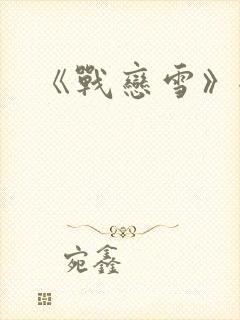 《戰戀雪》
宛鑫